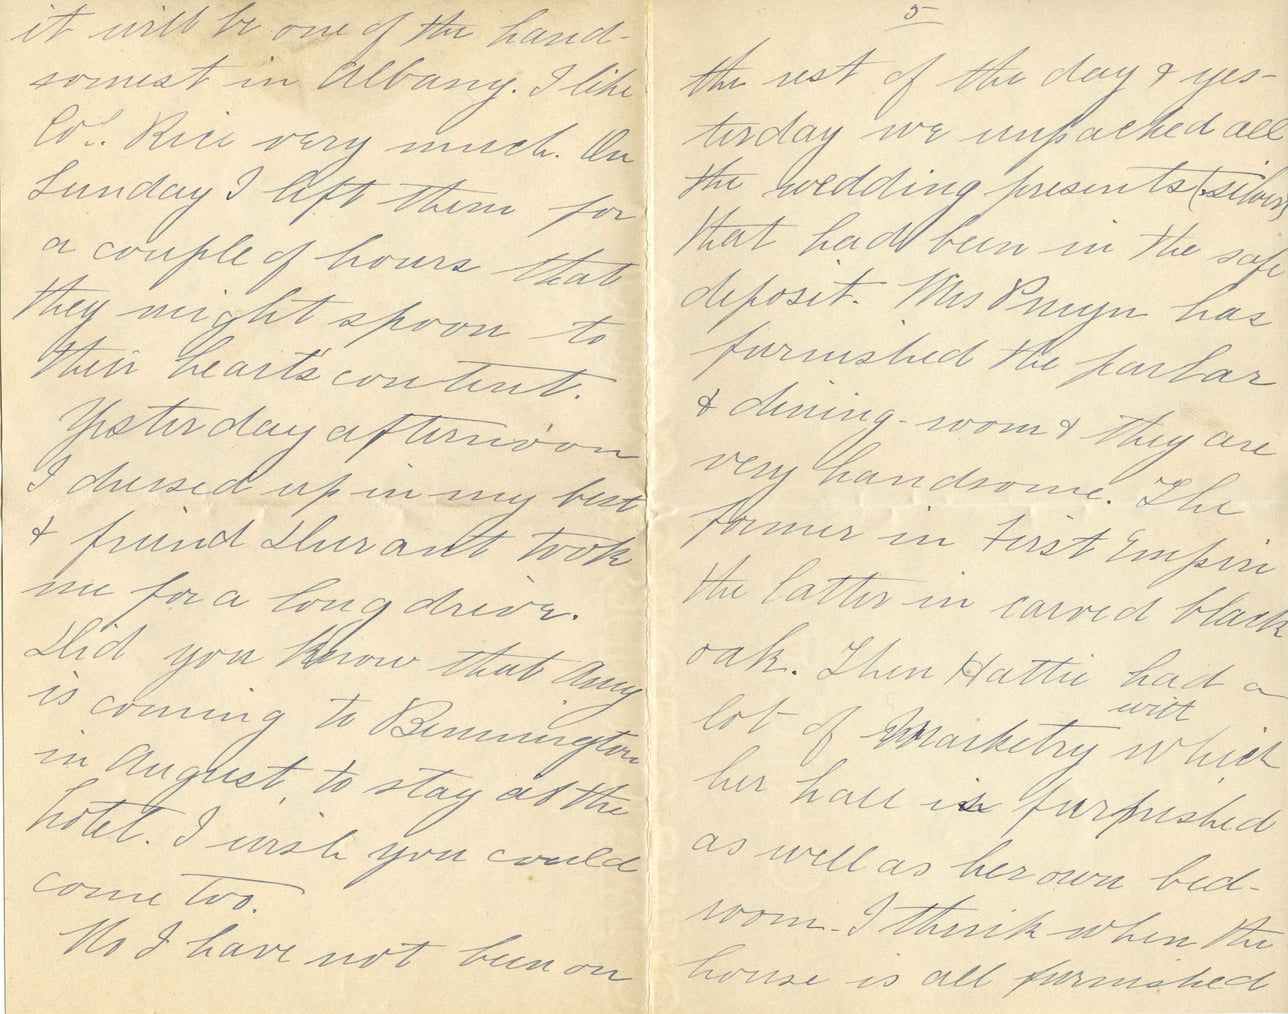 5
the rest of the day & yes-
terday we unpacked all
the wedding presents (silver)
that had been in the safe
deposit. Mrs Pruyn has
furnished the parlar
& dining-room & they are
very handsome. The
former in First Empire
the latter in carved black
oak. Then Hattie had a
lot of Marketry with which
her hall is furnished
as well as her own bed-
room. I think when the
house is all furnished
it will be one of the hand-
somest in Albany. I like
Col. Rice very much. On
Sunday I left them for
a couple of hours that
they might spoon to
their heart's content.
Yesterday afternoon
I dressed up in my best
& friend Durant took
me for a long drive.
Did you know that Amy
is coming to Bennington
in August, to stay at the
hotel. I wish you could
come too.
No I have not been on